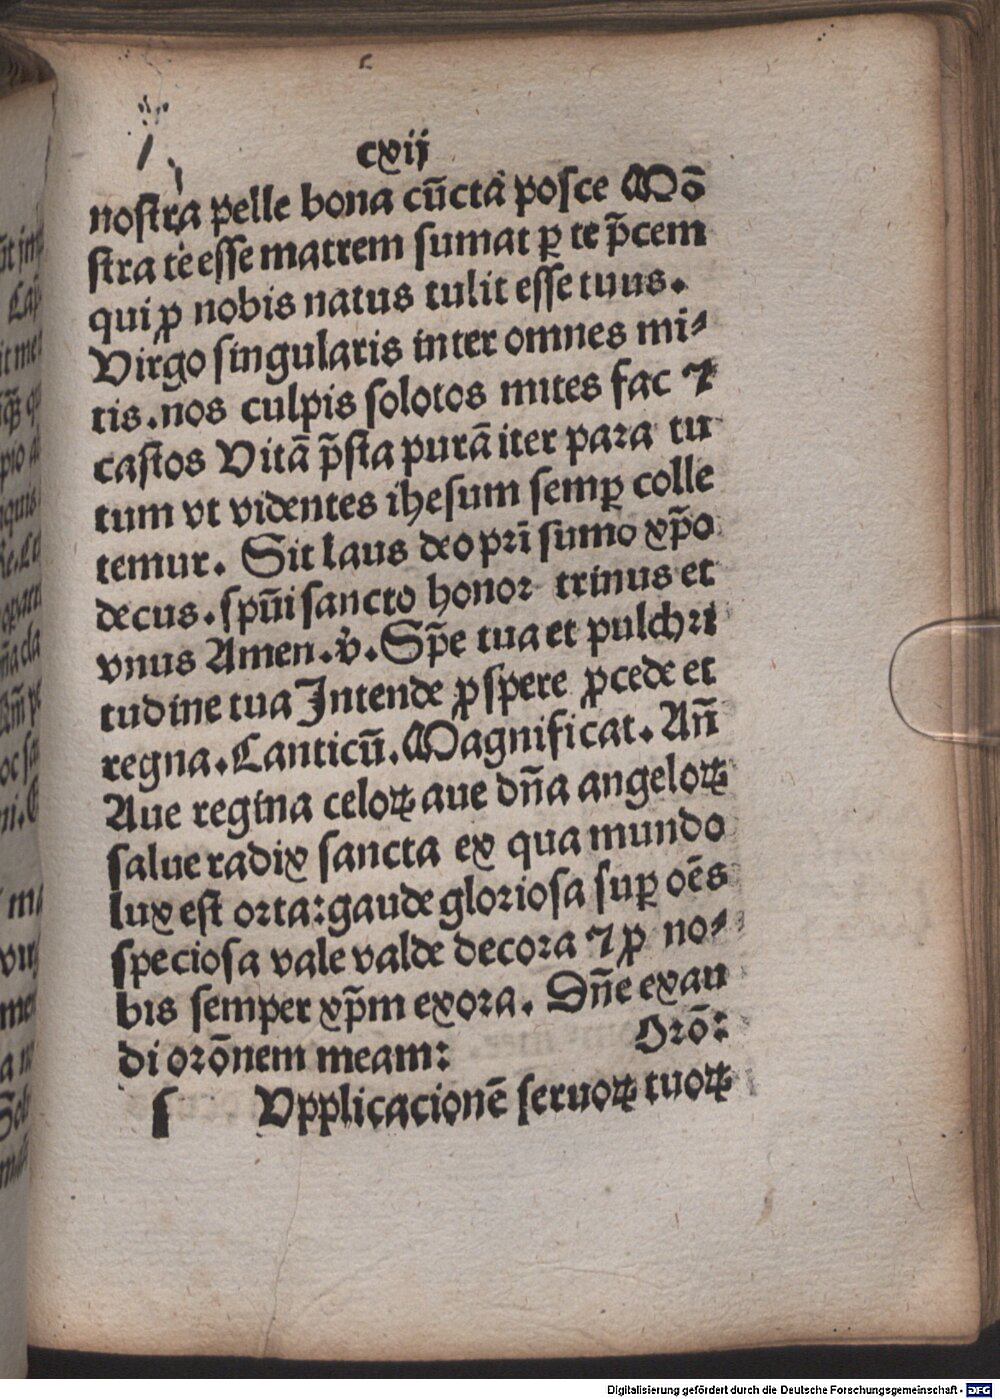 cxij
noſtra pelle bona cūcta poſce Mō
ſtra te eſſe matrem ſumat ꝑ te p̄cem
qui ꝓ nobis natus tulit eſſe tuus.
Virgo ſingularis inter omnes mi⸗
tis. nos culpis ſolotos mites fac ⁊
caſtos Vitā p̄ſta purā iter para tu
tum vt videntes iheſum ſemꝑ colle
temur. Sit laus deo pr̄i ſumo xp̄o
decus. ſpūi ſancto honor trinus et
vnus Amen. v̊. Sp̄e tua et pulchri
tudine tua Intende ꝓſpere ꝓcede et
regna. Canticū. Magnificat. An̄
Aue regina celoꝝ aue dn̄a angeloꝝ
ſalue radix ſancta ex qua mundo
lux eſt orta: gaude glorioſa ſuꝑ oēs
ſpecioſa vale valde decora ⁊ ꝓ no⸗
bis ſemper xp̄m exora. Dn̄e exau
di orōnem meam: Orō:
ſ Vpplicacionē ſeruoꝝ tuoꝝ
Digitalisierung gefördert durch die Deutsche Forschungsgemeinschaft - DFG